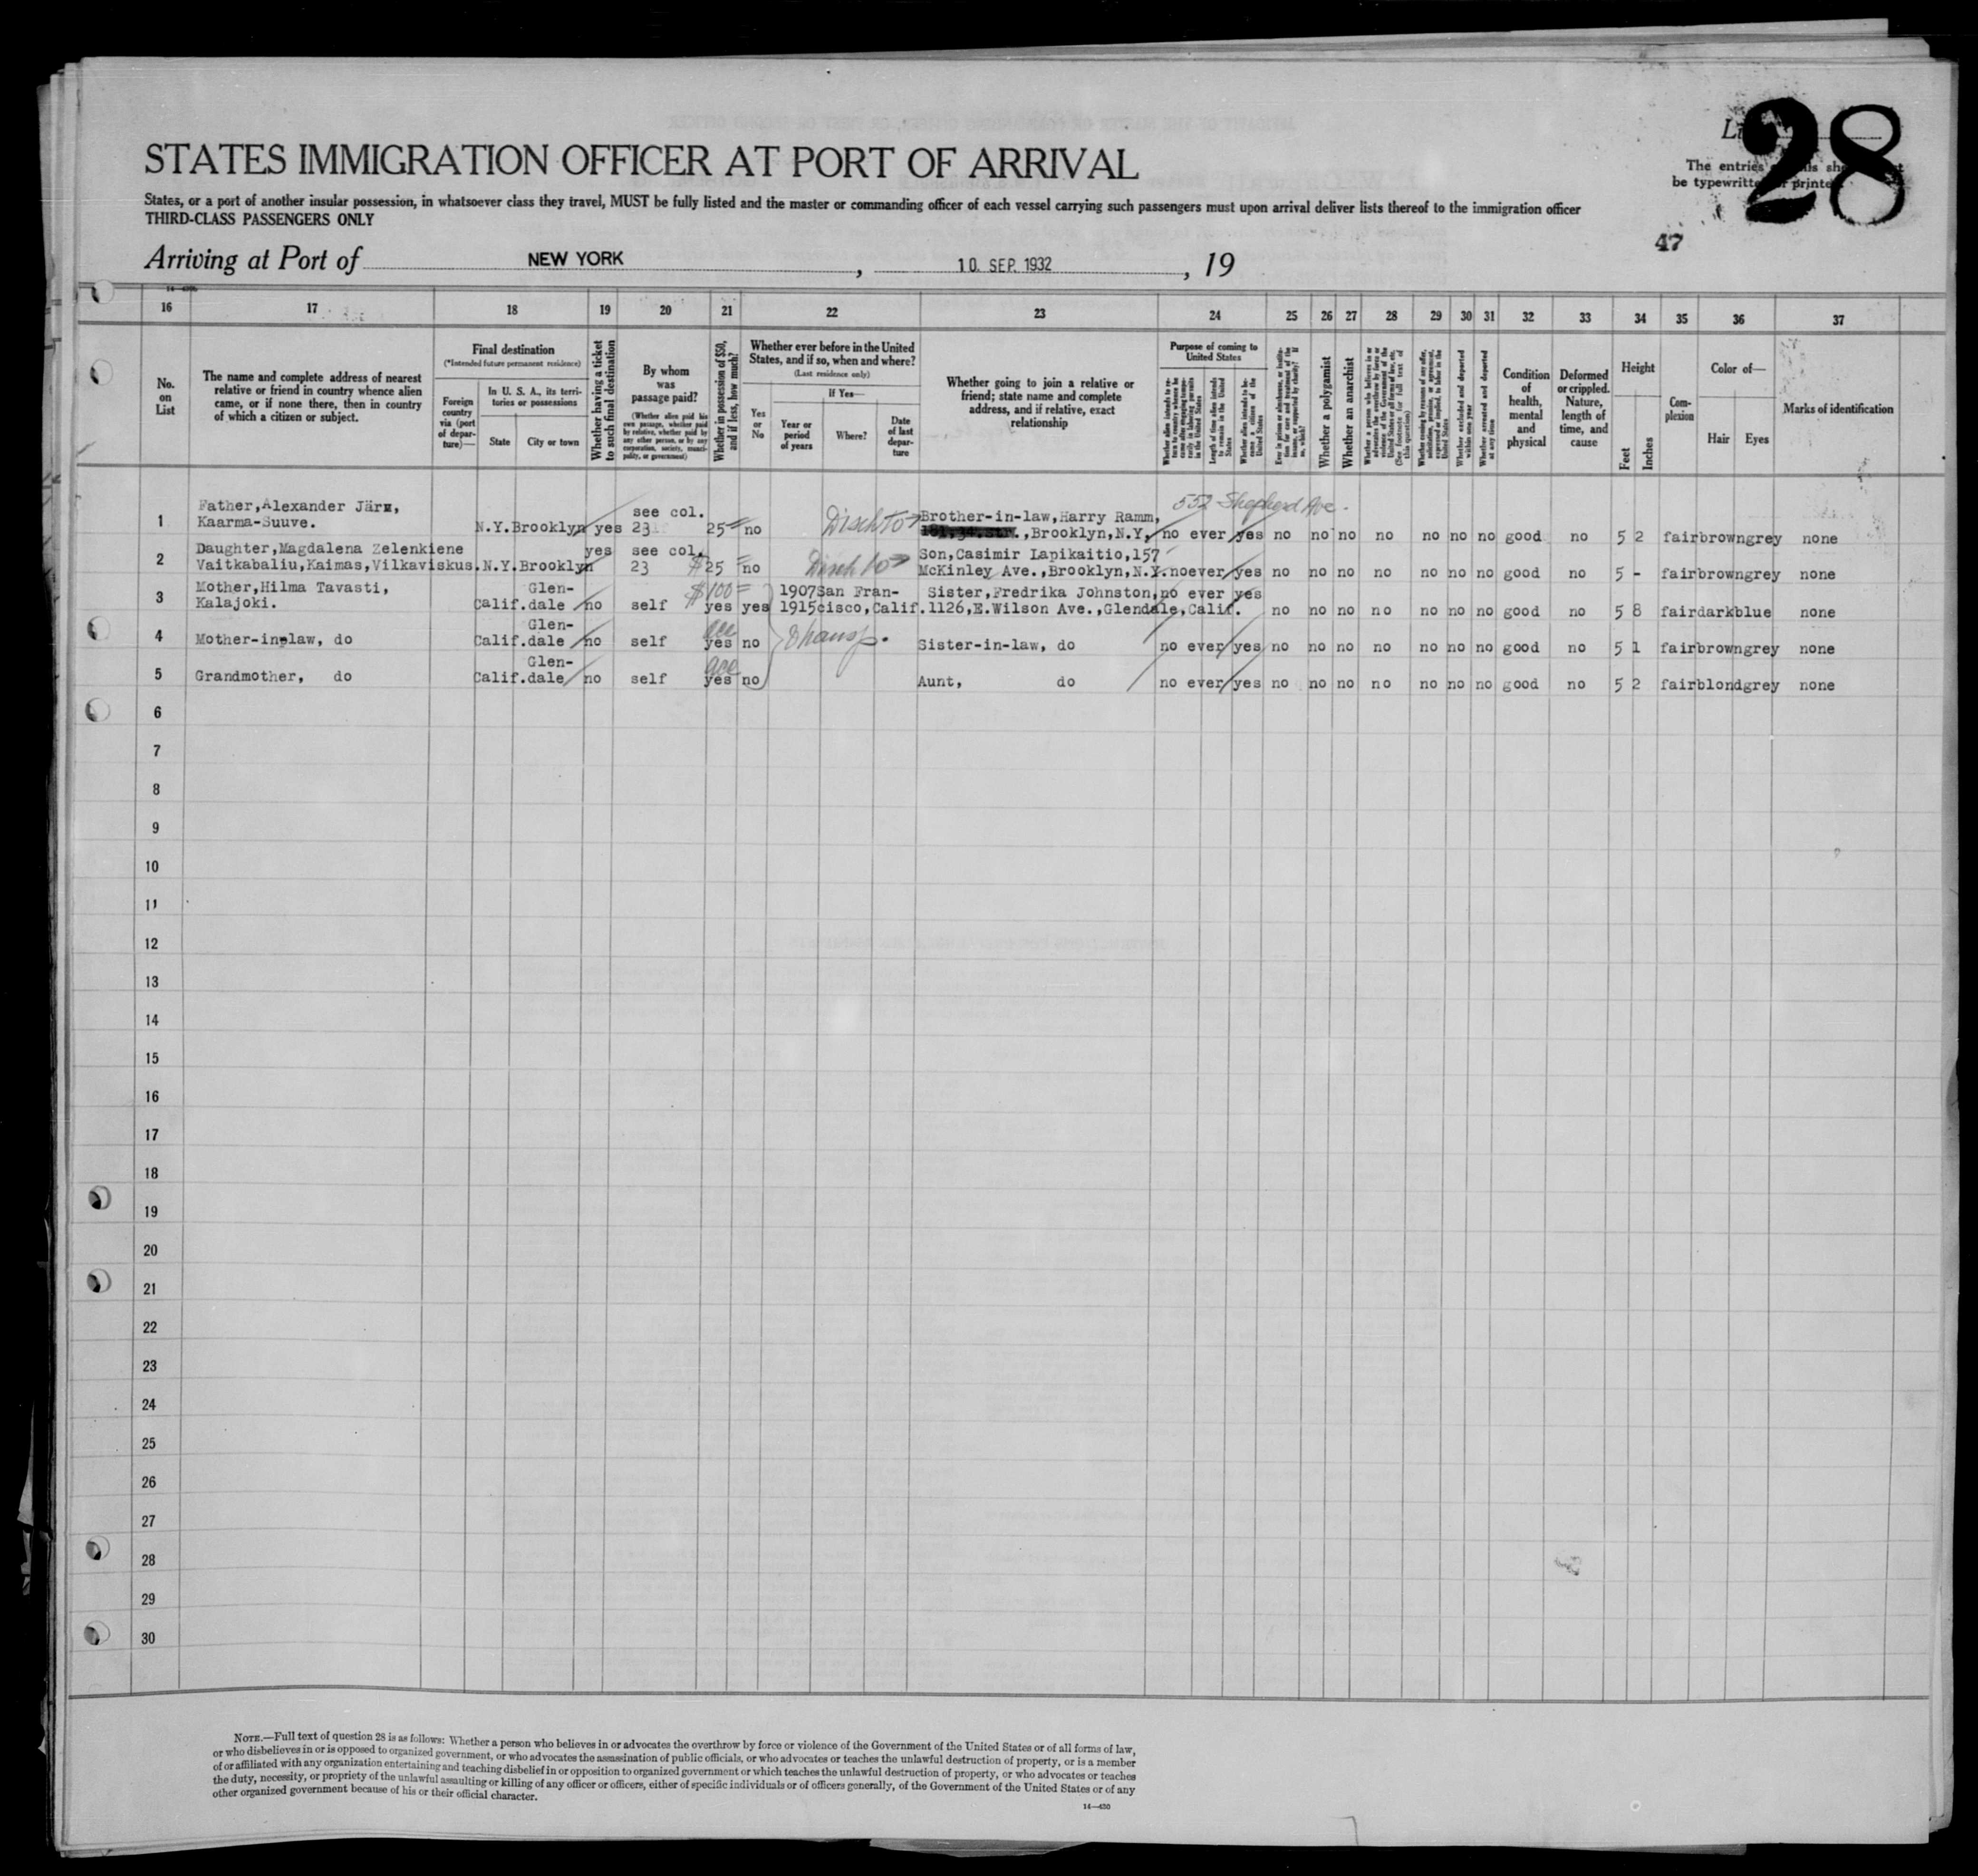 28
Li
STATES IMMIGRATION OFFICER AT PORT OF ARRIVAL
The entries on this sheet must
be typewritten or printed.
States, or a port of another insular possession, in whatsoever class they travel, MUST be fully listed and the master or commanding officer of each vessel carrying such passengers must upon arrival deliver lists thereof to the immigration officer
THIRD-CLASS PASSENGERS ONLY
47
Arriving at Port of NEW YORK , 10. SEP. 1932 , 19
16 17 18 19 20 21 22 23 24 25 26 27 28 29 30 31 32 33 34 35 36 37
No. on List
The name and complete address of nearest relative or friend in country whence alien came, or if none there, then in country of which a citizen or subject.
Final destination
(*Intended future permanent residence)
Foreign country via (port of departure)—
In U. S. A., its territories or possessions
State
City or town
Whether having a ticket to such final destination
By whom was passage paid?
(Whether alien paid his own passage, whether paid by relative, whether paid by any other person, or by any corporation, society, municipality, or government)
Whether in possession of $50, and if less, how much?
Whether ever before in the United States, and if so, when and where?
(Last residence only)
Yes or No
If Yes—
Year or period of years
Where?
Date of last departure
Whether going to join a relative or friend; state name and complete address, and if relative, exact relationship
Purpose of coming to United States
Length of time alien intends to remain in the United States
Whether alien intends to become a citizen of the United States
Whether a polygamist
Whether an anarchist
(See footnote for full text of this question)
Whether arrested and deported at any time
Condition of health, mental and physical
Deformed or crippled. Nature, length of time, and cause
Height
Feet
Inches
Complexion
Color of—
Hair
Eyes
Marks of identification
552 Shepherd Ave.
1 Father,Alexander Järv, Kaarma-Suuve. N.Y. Brooklyn yes see col. 23 25 no Disch to Brother-in-law,Harry Ramm, Brooklyn,N.Y. no ever yes no no no no no no no good no 5 2 fair brown grey none
2 Daughter,Magdalena Zelenkiene Vaitkabaliu,Kaimas,Vilkaviskus. N.Y. Brooklyn yes see col. 23 $25 no Disch to Son,Casimir Lapikaitio,157 McKinley Ave.,Brooklyn,N.Y. no ever yes no no no no no no no good no 5 - fair brown grey none
3 Mother,Hilma Tavasti, Kalajoki. Calif. Glendale no self $100 yes yes 1907 1915 San Francisco,Calif. Sister,Fredrika Johnston, 1126,E.Wilson Ave.,Glendale,Calif. no ever yes no no no no no no no good no 5 8 fair dark blue none
4 Mother-in-law, do Calif. Glendale no self yes no transp. Sister-in-law, do no ever yes no no no no no no no good no 5 1 fair brown grey none
5 Grandmother, do Calif. Glendale no self yes no Aunt, do no ever yes no no no no no no no good no 5 2 fair blond grey none
6
7
8
9
10
11
12
13
14
15
16
17
18
19
20
21
22
23
24
25
26
27
28
29
30
NOTE.—Full text of question 28 is as follows: Whether a person who believes in or advocates the overthrow by force or violence of the Government of the United States or of all forms of law,
or who disbelieves in or is opposed to organized government, or who advocates the assassination of public officials, or who advocates or teaches the unlawful destruction of property, or is a member
of or affiliated with any organization entertaining and teaching disbelief in or opposition to organized government or which teaches the unlawful destruction of property, or who advocates or teaches
the duty, necessity, or propriety of the unlawful assaulting or killing of any officer or officers, either of specific individuals or of officers generally, of the Government of the United States or of any
other organized government because of his or their official character.
14—430